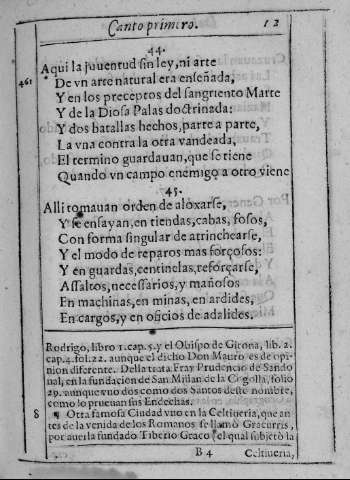 Canto primero. 12
44.
Aqui la juuentud sin ley, ni arte
461 De vn arte natural era enseñada,
Y en los preceptos del sangriento Marte
Y de la Diosa Palas doctrinada:
Y dos batallas hechos, parte a parte,
La vna contra la otra vandeada,
El termino guardauan, que se tiene
Quando vn campo enemigo a otro viene
45.
Alli tomauan orden de aloxarse,
Y se ensayan, en tiendas, cabas, fosos,
Con forma singular de atrinchearse,
Y el modo de reparos mas forçosos:
Y en guardas, centinelas, reforçarse,
Assaltos, necessarios, y mañosos
En machinas, en minas, en ardides,
En cargos, y en oficios de adalides.
Rodrigo, libro 1. cap. 5. y el Obispo de Girona, lib. 2.
cap. 4. fol. 22. aunque el dicho Don Mauro es de opi-
nion diferente. Della trata Fray Prudencio de Sando
ual, en la fundacion de San Millan de la Cogolla, folio
29. aunque vno dos como dos Santos deste nombre,
como lo prueuan sus Endechas.
8 ¶ Otta famosa Ciudad vuo en la Celtiueria, que an
tes de la venida de los Romanos se llamò Gracurris,
por auerla fundado Tiberio Graco, el qual subjetò la
B 4 Celtiueria,